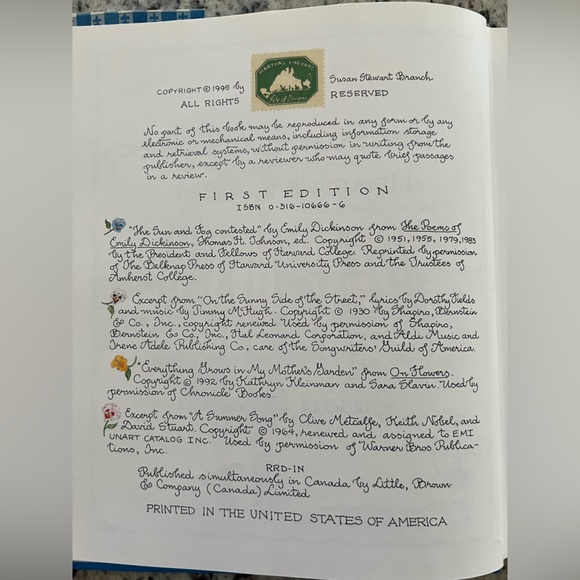 MARTHA'S VINEYARD
Isle of Dreams
COPYRIGHT © 1995 by Susan Stewart Branch
ALL RIGHTS RESERVED
No part of this book may be reproduced in any form or by any
electronic or mechanical means, including information storage
and retrieval systems, without permission in writing from the
publisher, except by a reviewer who may quote brief passages
in a review.
FIRST EDITION
ISBN 0-316-10666-6
"The Sun and Fog contested" by Emily Dickinson from The Poems of
Emily Dickinson, Thomas H. Johnson, ed. Copyright © 1951, 1955, 1979, 1983
by the President and Fellows of Harvard College. Reprinted by permission
of The Belknap Press of Harvard University Press and the Trustees of
Amherst College.
Excerpt from "On the Sunny Side of the Street," lyrics by Dorothy Fields
and music by Jimmy McHugh. Copyright © 1930 by Shapiro, Bernstein
& Co., Inc., copyright renewed. Used by permission of Shapiro,
Bernstein & Co., Inc., Hal Leonard Corporation, and Aldi Music and
Irene Adele Publishing Co., care of the Songwriters' Guild of America.
"Everything Grows in My Mother's Garden" from On Flowers.
Copyright © 1992 by Kathryn Kleinman and Sara Slavin. Used by
permission of Chronicle Books.
Excerpt from "A Summer Song" by Clive Metcalfe, Keith Nobel, and
David Stuart. Copyright © 1964, renewed and assigned to EMI
UNART CATALOG INC. Used by permission of Warner Bros. Publica-
tions, Inc.
RRD-IN
Published simultaneously in Canada by Little, Brown
& Company (Canada) Limited
PRINTED IN THE UNITED STATES OF AMERICA